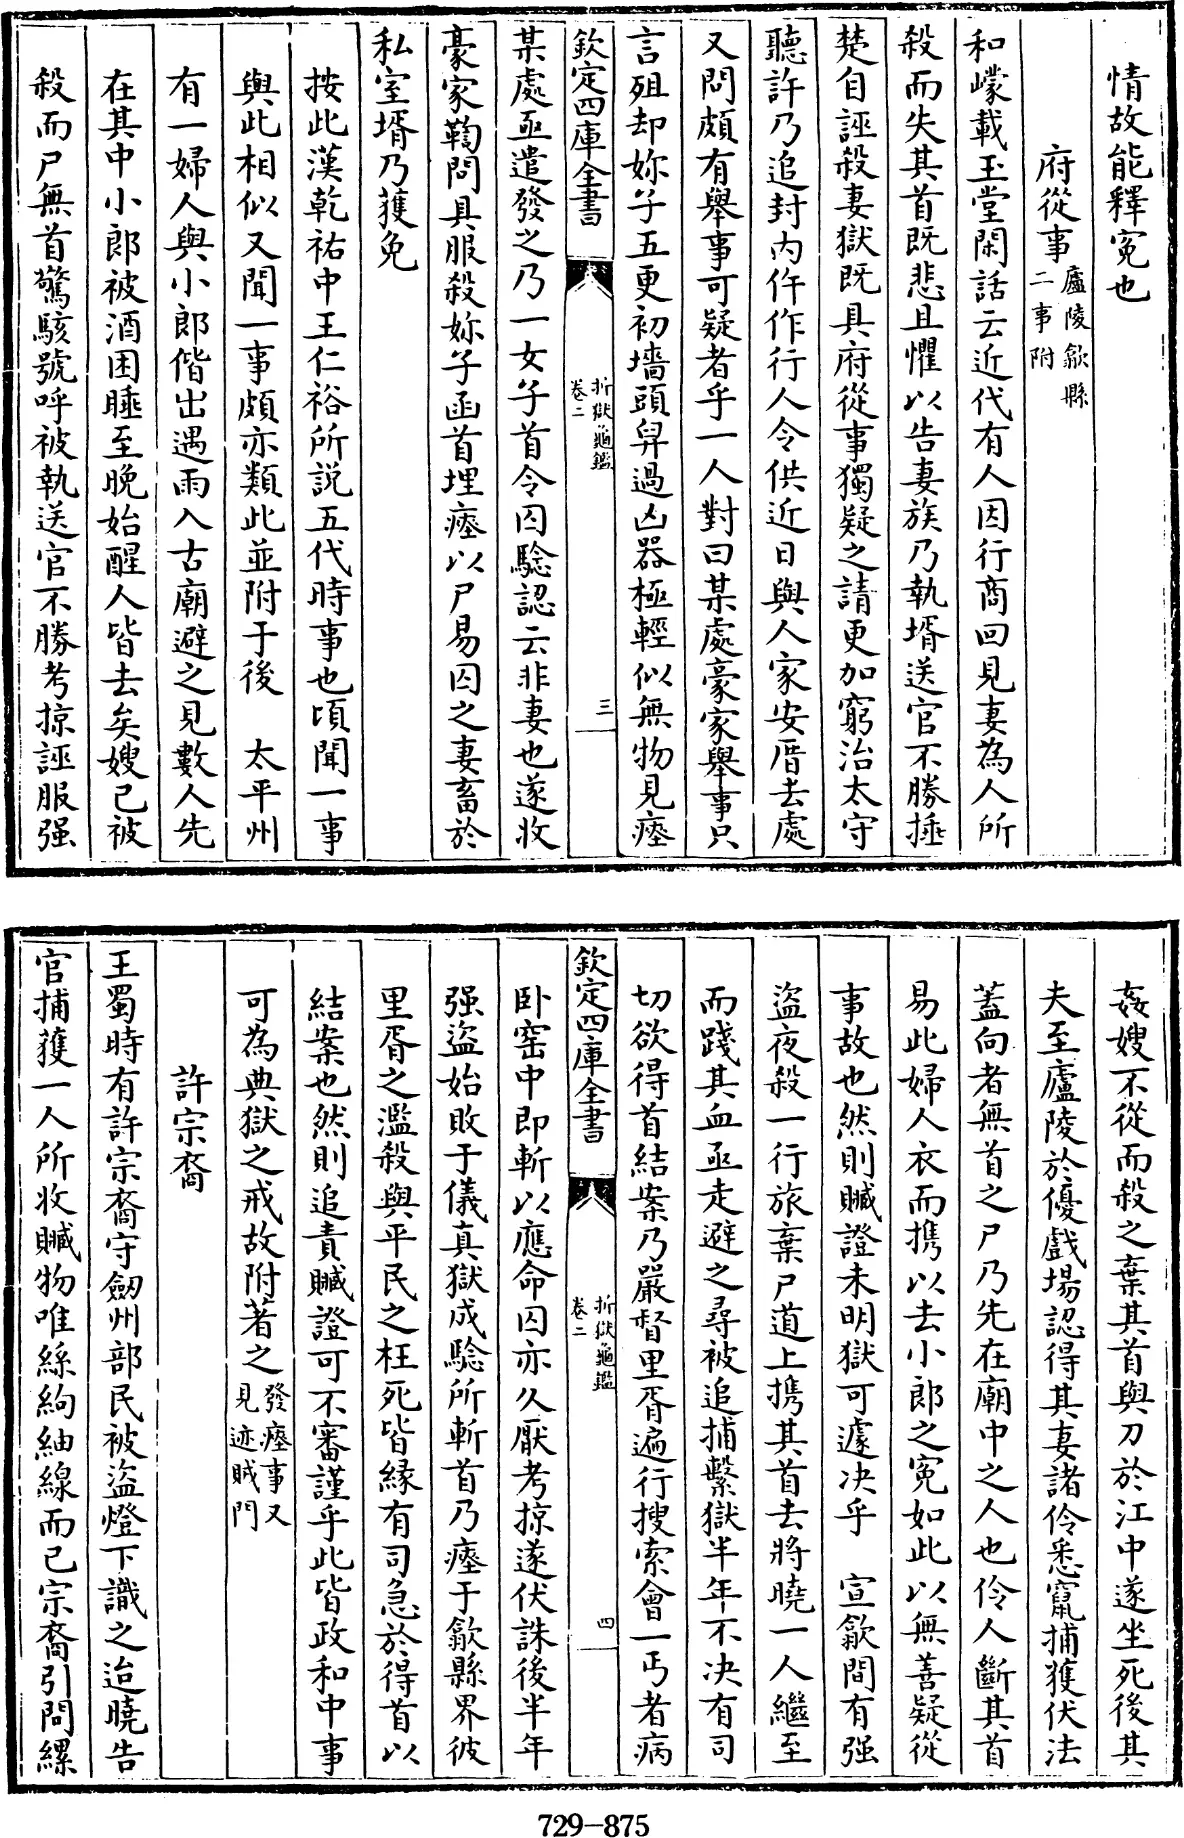 情故能釋冤也
府從事廬陵歙縣二事附
和㠓載玉堂閑話云近代有人因行商回見妻為人所
殺而失其首既悲且懼以告妻族乃執壻送官不勝捶
楚自誣殺妻獄既具府從事獨疑之請更加窮治太守
聽許乃追封内仵作行人令供近日與人家安厝去處
又問頗有舉事可疑者乎一人對曰某處豪家舉事只
言殂却妳子五更初墻頭舁過凶器極輕似無物見瘞
欽定四庫全書
折獄龜鑑
卷二
三
某處亟遣發之乃一女子首令囚驗認云非妻也遂收
豪家鞫問具服殺妳子函首埋瘞以尸易囚之妻畜於
私室壻乃獲免
按此漢乾祐中王仁裕所説五代時事也頃聞一事
與此相似又聞一事頗亦類此並附于後　太平州
有一婦人與小郎偕出遇雨入古廟避之見數人先
在其中小郎被酒困睡至晚始醒人皆去矣嫂已被
殺而尸無首驚駭號呼被執送官不勝考掠誣服强
姦嫂不從而殺之棄其首與刀於江中遂坐死後其
夫至廬陵於優戲場認得其妻諸伶悉竄捕獲伏法
蓋向者無首之尸乃先在廟中之人也伶人斷其首
易此婦人衣而携以去小郎之冤如此以無善疑從
事故也然則贓證未明獄可遽决乎　宣歙間有强
盗夜殺一行旅棄尸道上携其首去將曉一人繼至
而踐其血亟走避之尋被追捕繫獄半年不决有司
切欲得首結案乃嚴督里胥遍行搜索會一丐者病
欽定四庫全書
折獄龜鑑
卷二
四
卧窑中即斬以應命囚亦久厭考掠遂伏誅後半年
强盗始敗于儀真獄成驗所斬首乃瘞于歙縣界彼
里胥之濫殺與平民之枉死皆緣有司急於得首以
結案也然則追責贓證可不審謹乎此皆政和中事
可為典獄之戒故附著之發瘞事又見迹賊門
許宗裔
王蜀時有許宗裔守劒州部民被盗燈下識之迨曉告
官捕獲一人所收贓物唯絲絇紬線而已宗裔引問縲
729-875